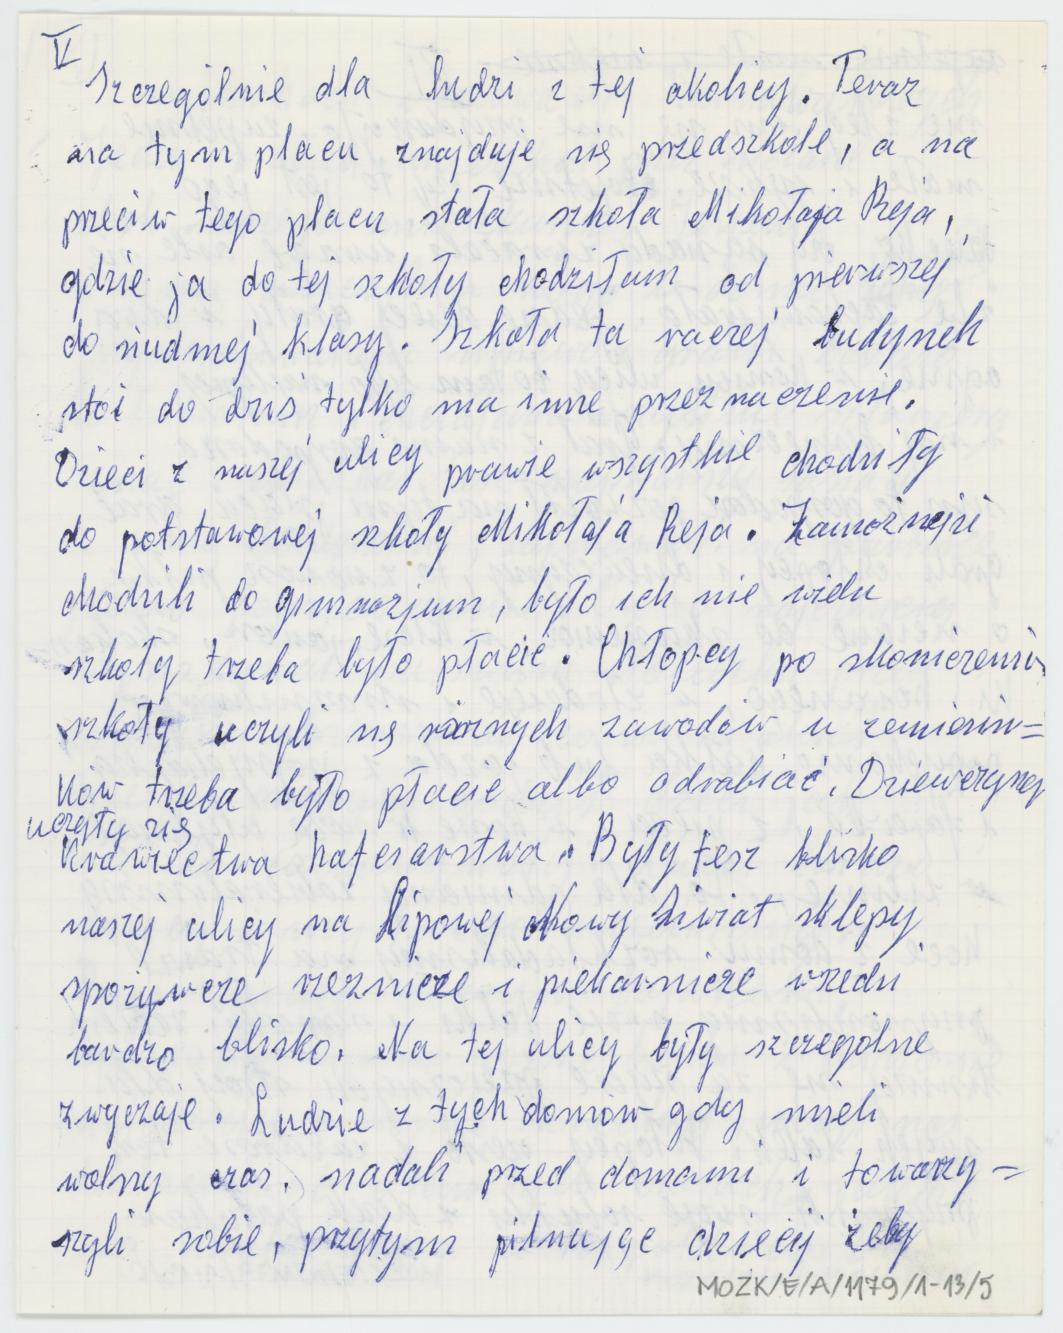 V
Szczególnie dla ludzi z tej okolicy. Teraz
na tym placu znajduje się przedszkole, a na
przeciw tego placu stała szkoła Mikołaja Reja,
gdzie ja do tej szkoły chodziłam od pierwszej
do siudmej klasy. Szkoła ta raczej budynek
stoi do dziś tylko ma inne przeznaczenie.
Dzieci z naszej ulicy prawie wszystkie chodziły
do potstawowej szkoły Mikołaja Reja. Zamożniejsi
chodzili do gimnazjum, było ich nie wielu
szkoły trzeba było płacić. Chłopcy po skończeniu
szkoły uczyli się różnych zawodów u żemieśni=
ków trzeba było płacić albo odrabiać. Dziewczyny
uczyły się
krawiectwa hafciarstwa. Były tesz blisko
naszej ulicy na Lipowej Nowy Świat sklepy
spożywcze rzeźnicze i piekarnicze wszędzi
bardzo blisko. Na tej ulicy były szczególne
zwyczaje. Ludzie z tych domów gdy mieli
wolny czas, siadali przed domami i towarzy=
szyli sobie, przytym pilnując dziecij żeby
MOZK/E/A/1179/1-13/5